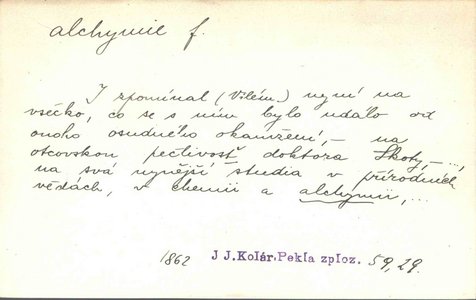 alchymie f.
I zpomínal (Vilém) nyní na
všecko, co se s ním bylo událo od
onoho osudného okamžení, – na
otcovskou pečlivost doktora Škoty –...,
na svá nynější studia v přírodních
vědách, v chemii a alchymii,...
1862 J J.Kolár.Pekla zploz. 59,29.